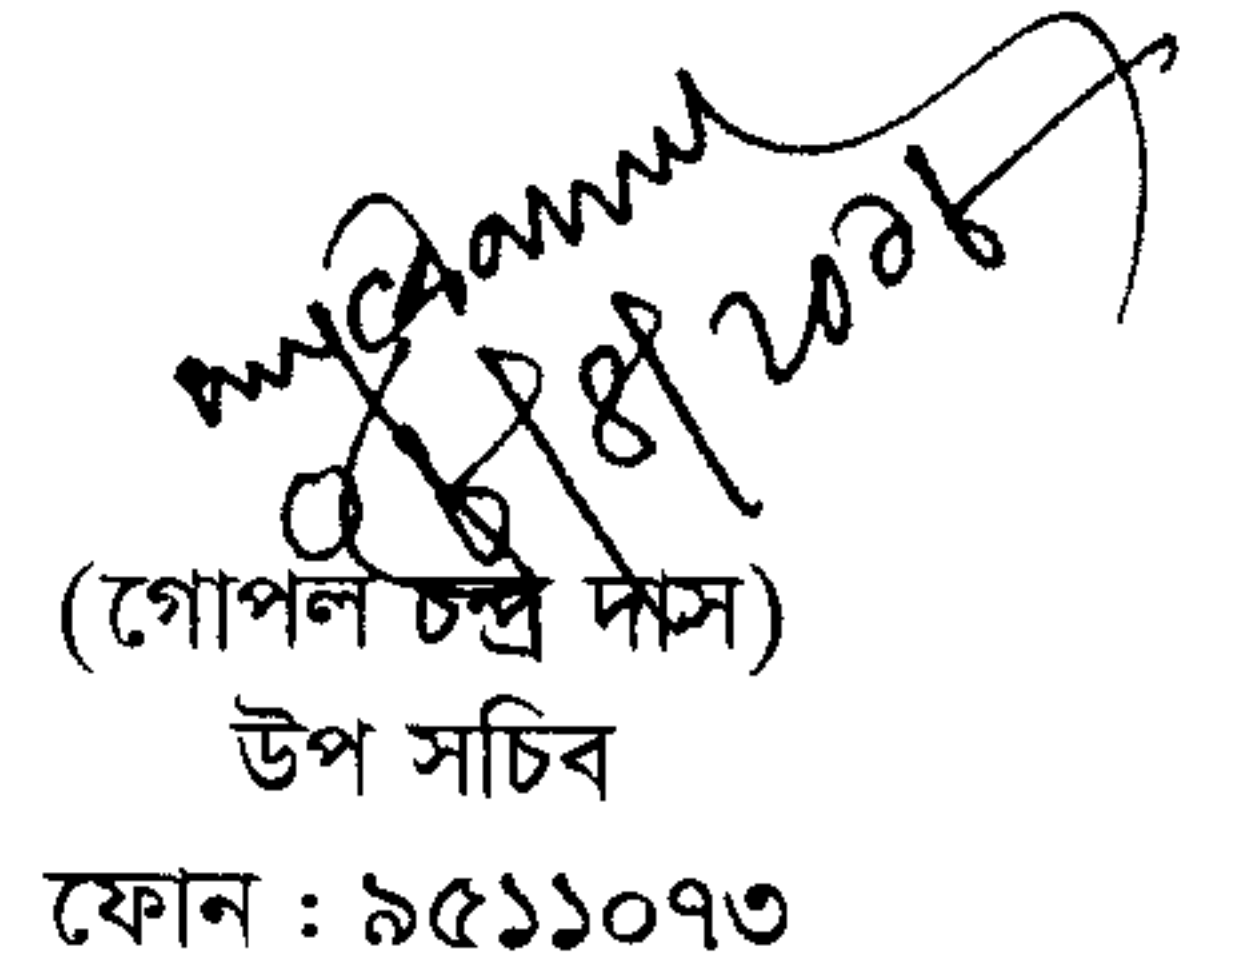 (গোপল চন্দ্র দাস)
উপ সচিব
ফোন : ৯৫১১০৭৩